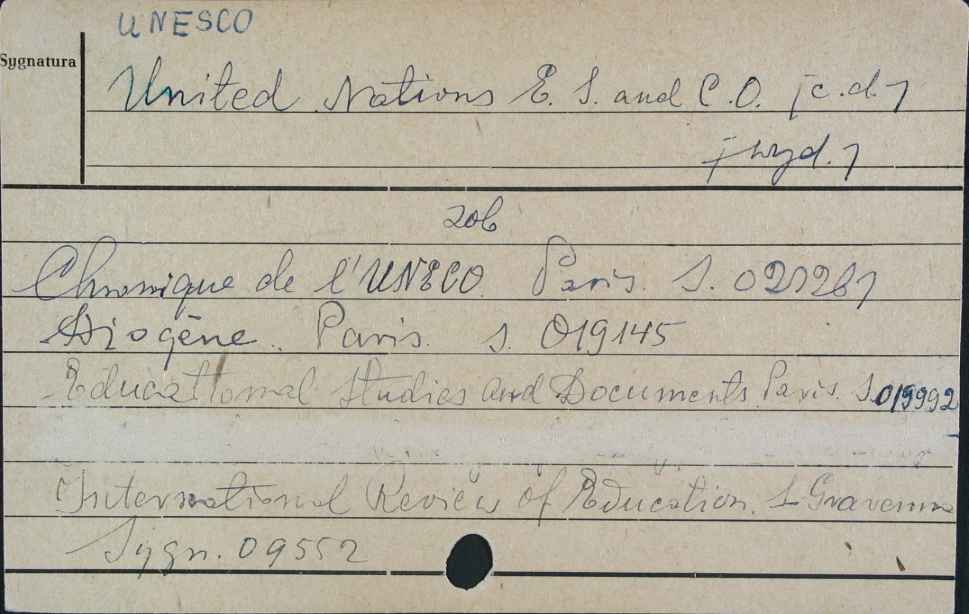 UNESCO
Sygnatura
United Nations E. S. and C.O. [c.d.]
[wyd.]
zob
Chronique de l'UNESCO. Paris. S. 021281
Diogène. Paris. S. 019145
Educational Studies and Documents Paris. S. 019992
International Review of Education. S-Gravenha
Sygn. 09552